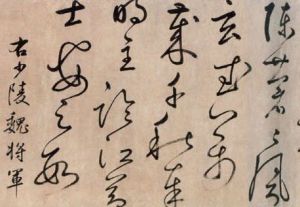 陳蒼々風
玄武萬
歲千秋奉
明主臨江節
士安足數
右少陵魏將軍